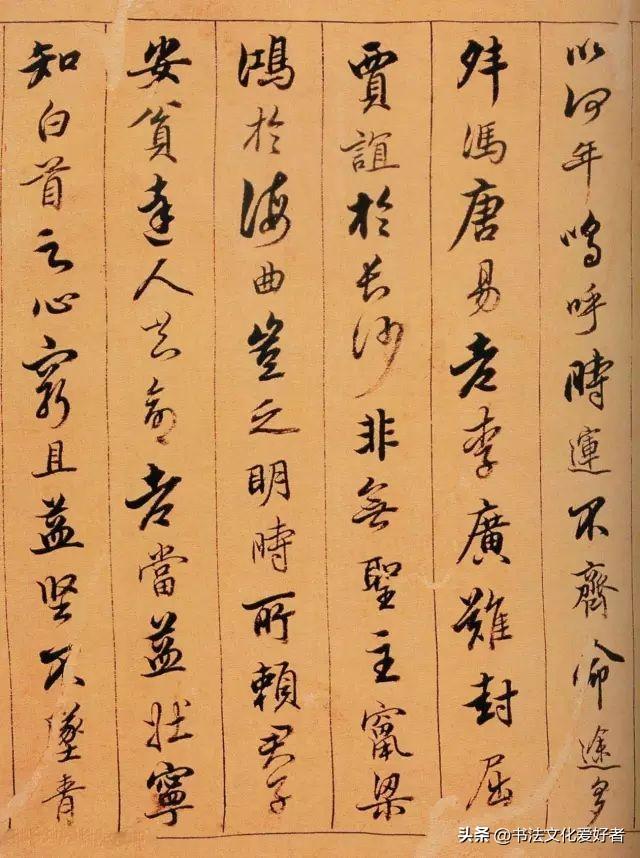 以何年嗚呼時運不齊命途多
舛馮唐易老李廣難封屈
賈誼於長沙非無聖主竄梁
鴻於海曲豈乏明時所賴君子
安貧達人知命老當益壯寧
知白首之心窮且益堅不墜青
头条 @书法文化爱好者